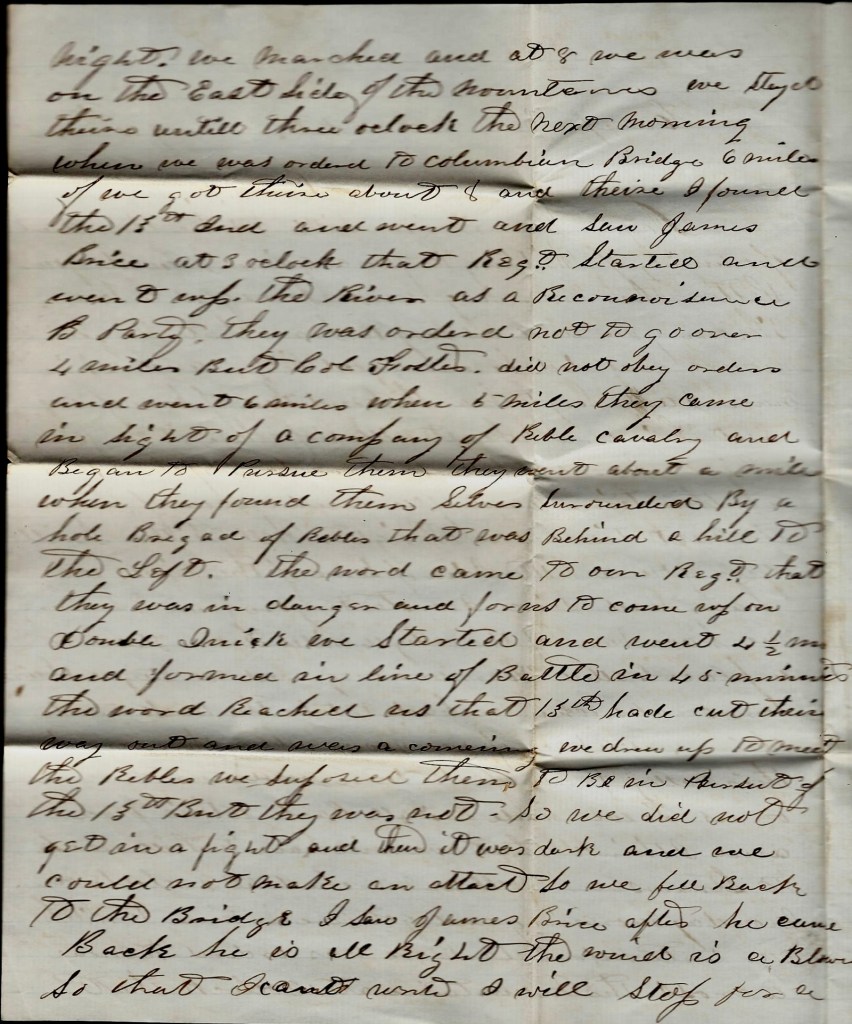 Night. we marched and at 8 we was
on the East Side of the mountains we Stayd
theire untill three oclock the next Morning
when we was orderd to columbian Bridge 6 mile
of we got theire about 8 and theire I found
the 13th Ind and went and Saw James
Brice at 3 oclock that Regt. Started and
went up. the River as a Reconnoisence
B Party. they was orderd not to go over
4 miles But Col did not obey orders
and went 6 miles when 5 miles they came
in Sight of a company of Reble cavalry and
Began to Pursue them they went about a mile
when they found them Selves Surrounded By a
hole Brigad of Rebles that was Behind a hill to
the Left. the word came to our Regt. that
they was in danger and for us to come up on
Double Quick we Started and went 4 1/2 m
and formed in line of Battle in 45 minuts
the word Reached us that 13th hade cut their
way out and was a comeing we drew up to meet
the Rebles we Suposed them to Be in Pursut of
the 13th But they was not - So we did not
get in a fight and then it was dark and we
could not make an attact So we fell Back
to the Bridge I Saw James Brice after he came
Back he is all Right the wind is a Blow
So that I cant write I will Stop for a